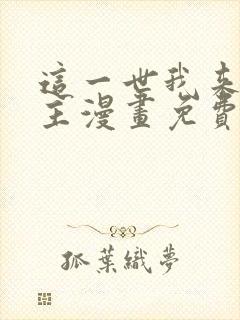 這一世我來
主漫畫免費
孤葉織夢